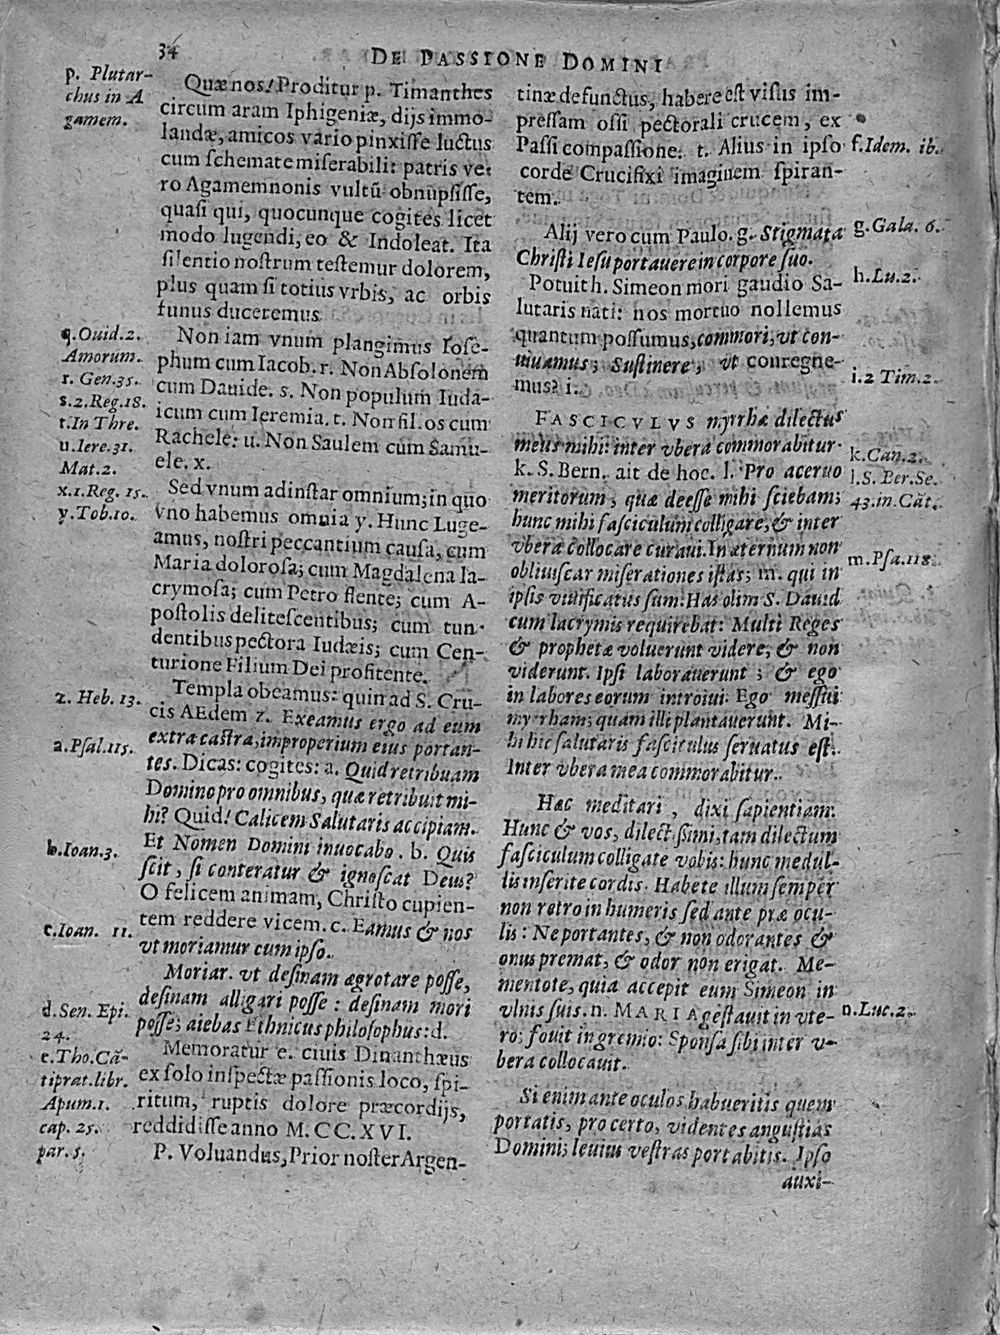 34
DE PASSIONE DOMINI
p. Plutar-
chus in A
gamem.
q. Ouid. 2.
Amorum.
r. Gen. 35.
s. 2. Reg. 18.
t. In Thre.
u. Iere. 31.
Mat. 2.
x. 1. Reg. 15.
y. Tob. 10.
z. Heb. 13.
a. Psal. 115.
b. Ioan. 3.
c. Ioan. 11.
d. Sen. Epi.
24.
e. Tho. Cã-
tiprat. libr.
Apum. 1.
cap. 25.
par. 5.
Quæ nos! Proditur p. Timanthes
circum aram Iphigeniæ, dijs immo-
landæ, amicos vario pinxisse luctus
cum schemate miserabili: patris ve-
ro Agamemnonis vultũ obnupsisse,
quasi qui, quocunque cogites licet
modo lugendi, eo & Indoleat. Ita
silentio nostrum testemur dolorem,
plus quam si totius vrbis, ac orbis
funus duceremus.
Non iam vnum plangimus Iose-
phum cum Iacob. r. Non Absolonem
cum Dauide. s. Non populum Iuda-
icum cum Ieremia. t. Non filios cum
Rachele: u. Non Saulem cum Samu-
ele. x.
Sed vnum ad instar omnium; in quo
vno habemus omnia y. Hunc Luge-
amus, nostri peccantium causa, cum
Maria dolorosa; cum Magdalena la-
crymosa; cum Petro flente; cum A-
postolis delitescentibus; cum tun-
dentibus pectora Iudæis; cum Cen-
turione Filium Dei profitente.
Templa obeamus: quin ad S. Cru-
cis AEdem z. Exeamus ergo ad eum
extra castra, improperium eius portan-
tes. Dicas: cogites: a. Quid retribuam
Domino pro omnibus, quæ retribuit mi-
hi? Quid! Calicem Salutaris accipiam.
Et Nomen Domini inuocabo. b. Quis
scit, si conteratur & ignoscat Deus?
O felicem animam, Christo cupien-
tem reddere vicem. c. Eamus & nos
vt moriamur cum ipso.
Moriar. vt desinam ægrotare posse,
desinam alligari posse: desinam mori
posse; aiebas Ethnicus philosophus: d.
Memoratur e. ciuis Dinanthæus
ex solo inspectæ passionis loco, spi-
ritum, ruptis dolore præcordijs,
reddidisse anno M. CC. XVI.
P. Voluandus, Prior noster Argen-
tinæ defunctus, habere est visus im-
pressam ossi pectorali crucem, ex
Passi compassione. t. Alius in ipso
corde Crucifixi imaginem spiran-
tem.
Alij vero cum Paulo. g. Stigmata
Christi Iesu portauere in corpore suo.
Potuit h. Simeon mori gaudio Sa-
lutaris nati: nos mortuo nollemus
quantum possumus, commori, vt con-
uiuamus; Sustinere, vt conregne-
mus? i.
FASCICVLVS myrrhæ dilectus
meus mihi: inter vbera commorabitur.
k. S. Bern. ait de hoc. l. Pro aceruo
meritorum, quæ deesse mihi sciebam;
hunc mihi fasciculum colligare, & inter
vbera collocare curaui. In æternum non
obliuiscar miserationes istas; m. qui in
ipsis viuificatus sum. Has olim S. Dauid
cum lacrymis requirebat: Multi Reges
& prophetæ voluerunt videre; & non
viderunt. Ipsi laborauerunt; & ego
in labores eorum introiui. Ego messui
myrrham; quam illi plantauerunt. Mi-
hi hic salutaris fasciculus seruatus est.
Inter vbera mea commorabitur.
Hæc meditari, dixi sapientiam.
Hunc & vos, dilectissimi, tam dilectum
fasciculum colligate vobis: hunc medul-
lis inserite cordis. Habete illum semper
non retro in humeris sed ante præ ocu-
lis: Ne portantes, & non odorantes &
onus premat, & odor non erigat. Me-
mentote, quia accepit eum Simeon in
vlnis suis. n. MARIA gestauit in vte-
ro; fouit in gremio: Sponsa sibi inter v-
bera collocauit.
Si enim ante oculos habueritis quem
portatis, pro certo, videntes angustias
Domini; leuius vestras portabitis. Ipso
auxi-
f. Idem. ib.
g. Gala. 6.
h. Lu. 2.
i. 2 Tim. 2.
k. Can. 2.
l. S. Ber. Se.
43. in Cãt.
m. Psa. 118.
n. Luc. 2.